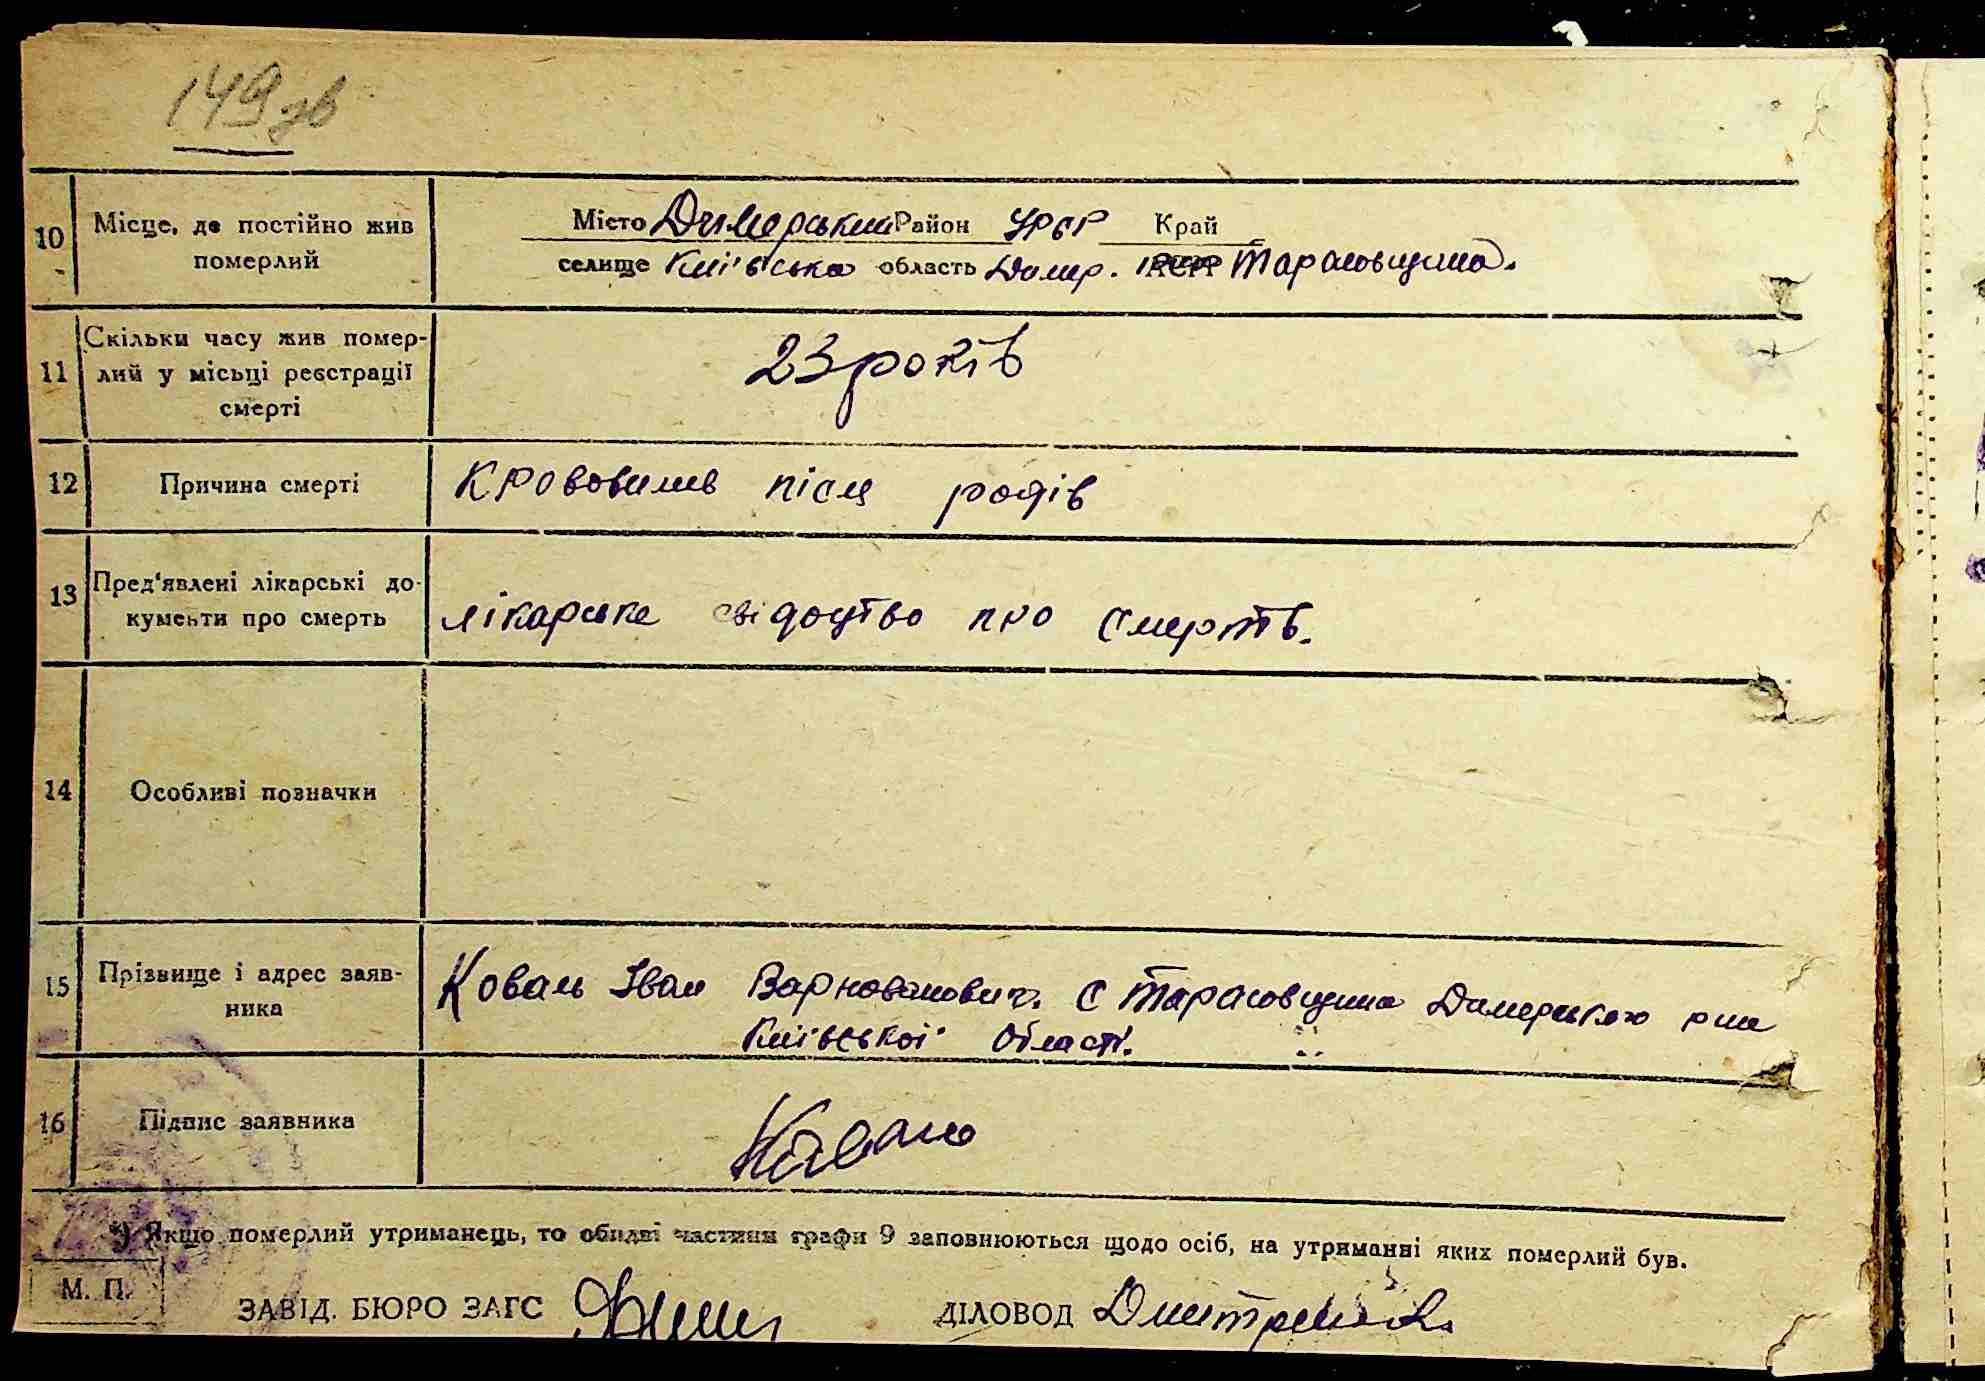 149зв
10 Місце, де постійно жив померлий
Місто Димерський Район УРСР Край
селище Київська область Димер. АСРР Тарасовщина.
11 Скільки часу жив помер-
лий у місьці реєстрації
смерті
23 років
12 Причина смерті
Крововилив після родів
13 Пред'явлені лікарські до-
кументи про смерть
лікарське свідоцтво про смерть.
14 Особливі позначки
15 Прізвище і адрес заяв-
ника
Коваль Іван с Тарасовщина Димерського р-ну
Київської області.
16 Підпис заявника
Коваль
*) Якщо померлий утриманець, то обидві частини графи 9 заповнюються щодо осіб, на утриманні яких померлий був.
М. П.
ЗАВІД. БЮРО ЗАГС
ДІЛОВОД